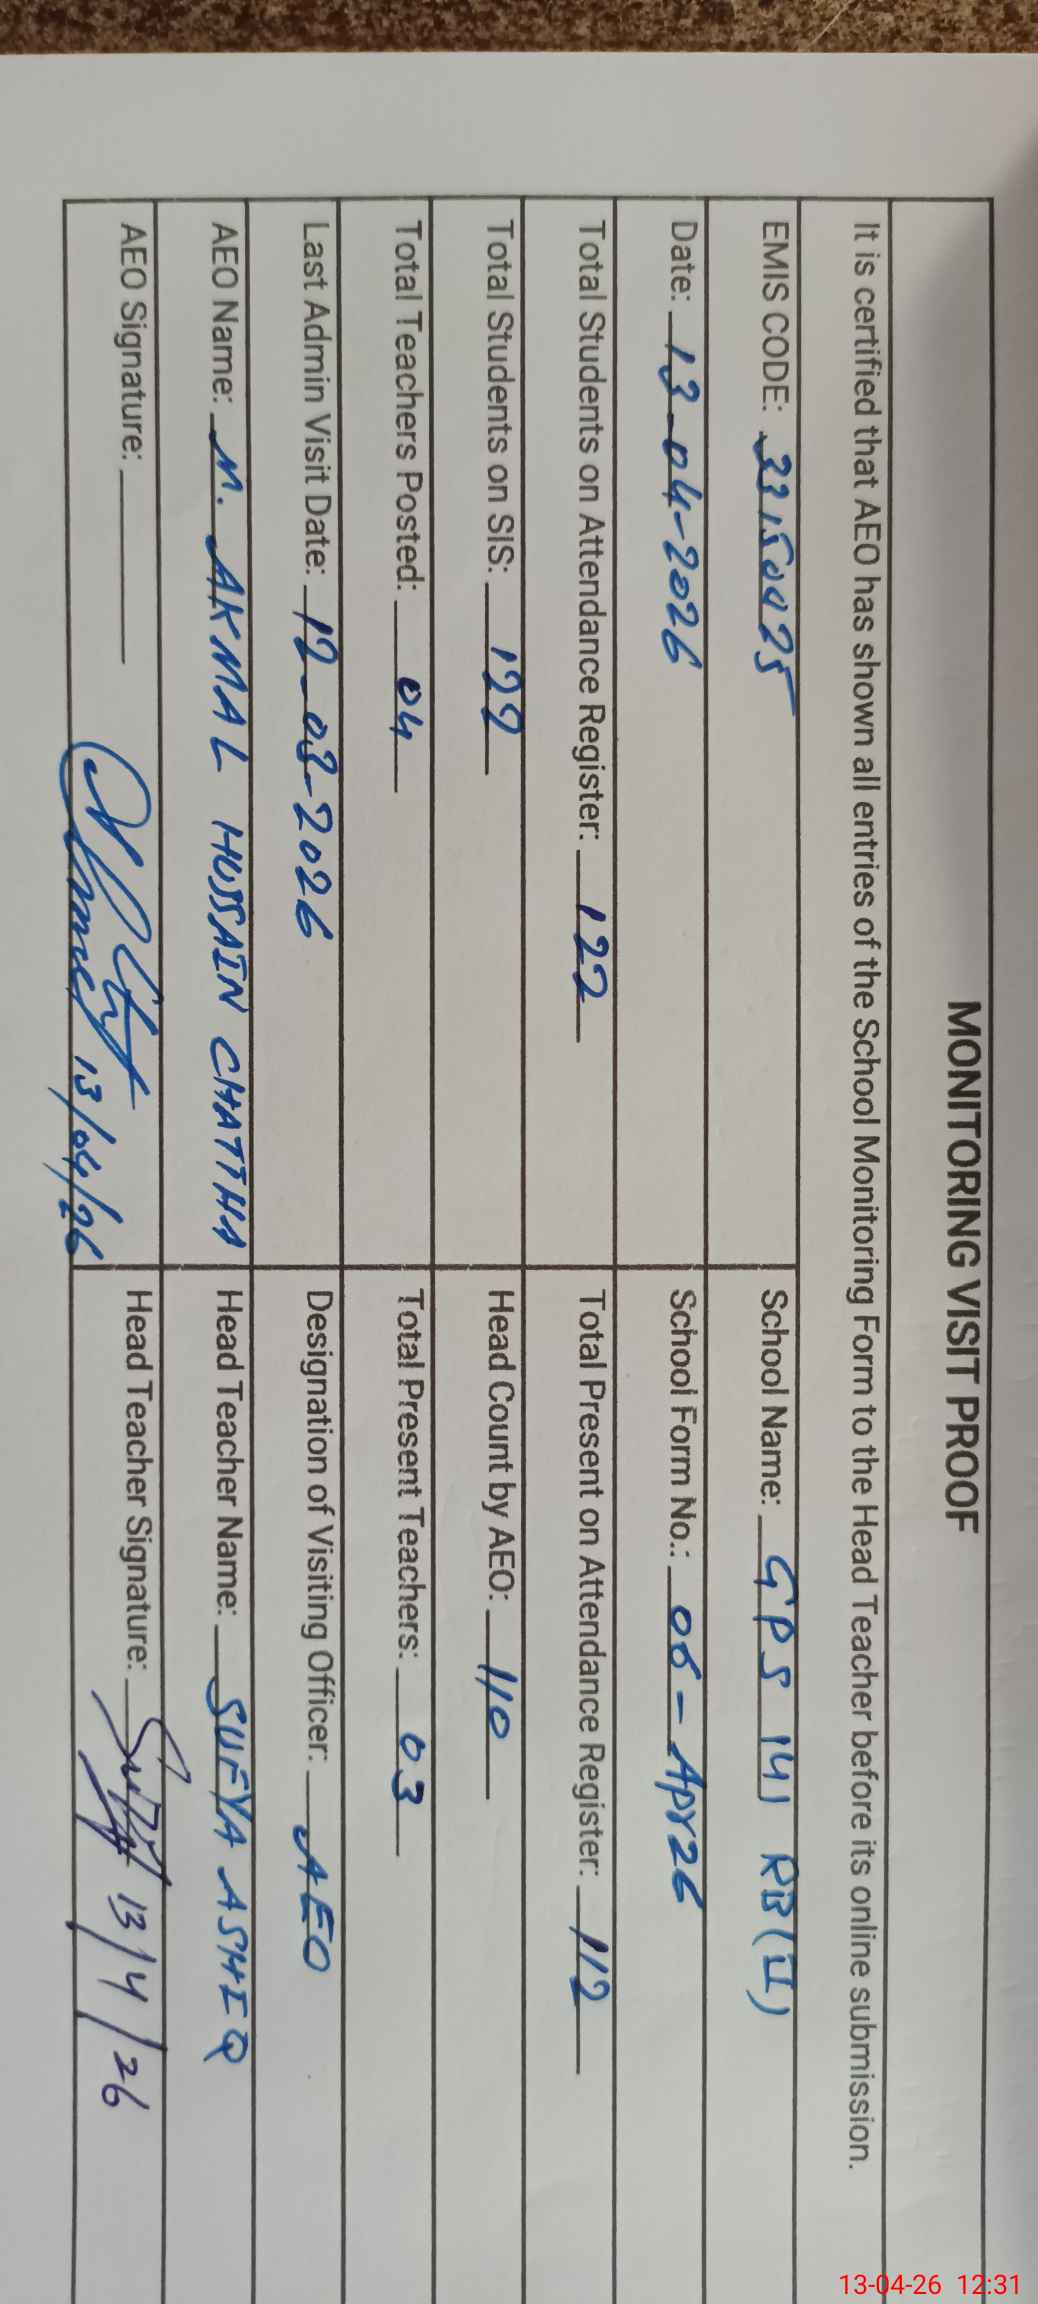 MONITORING VISIT PROOF
It is certified that AEO has shown all entries of the School Monitoring Form to the Head Teacher before its online submission.
EMIS CODE: 33150025 School Name: GPS 141 RB (II)
Date: 13-04-2026 School Form No.: 06-Apr26
Total Students on Attendance Register: 122 Total Present on Attendance Register: 112
Total Students on SIS: 122 Head Count by AEO: 110
Total Teachers Posted: 04 Total Present Teachers: 03
Last Admin Visit Date: 12-03-2026 Designation of Visiting Officer: AEO
AEO Name: M. AKMAL HUSSAIN CHATTHA Head Teacher Name: SUFYA ASHIQ
AEO Signature: 13/04/26 Head Teacher Signature: 13/4/26
13-04-26 12:31